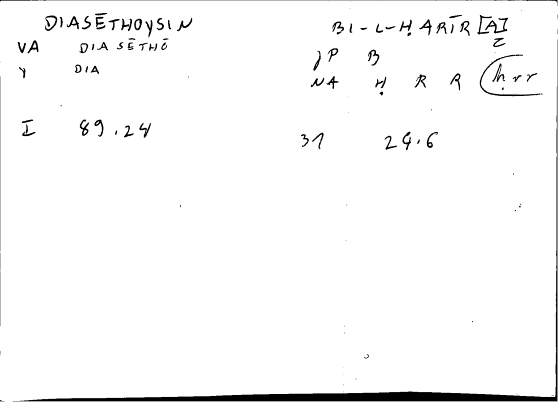 DIASĒTHOYSIN BI-L-ḤARĪR[A]Z
VA DIASĒTHŌ JP B
Y DIA NA Ḥ R R ḥrr
I 89.24 31 24.6